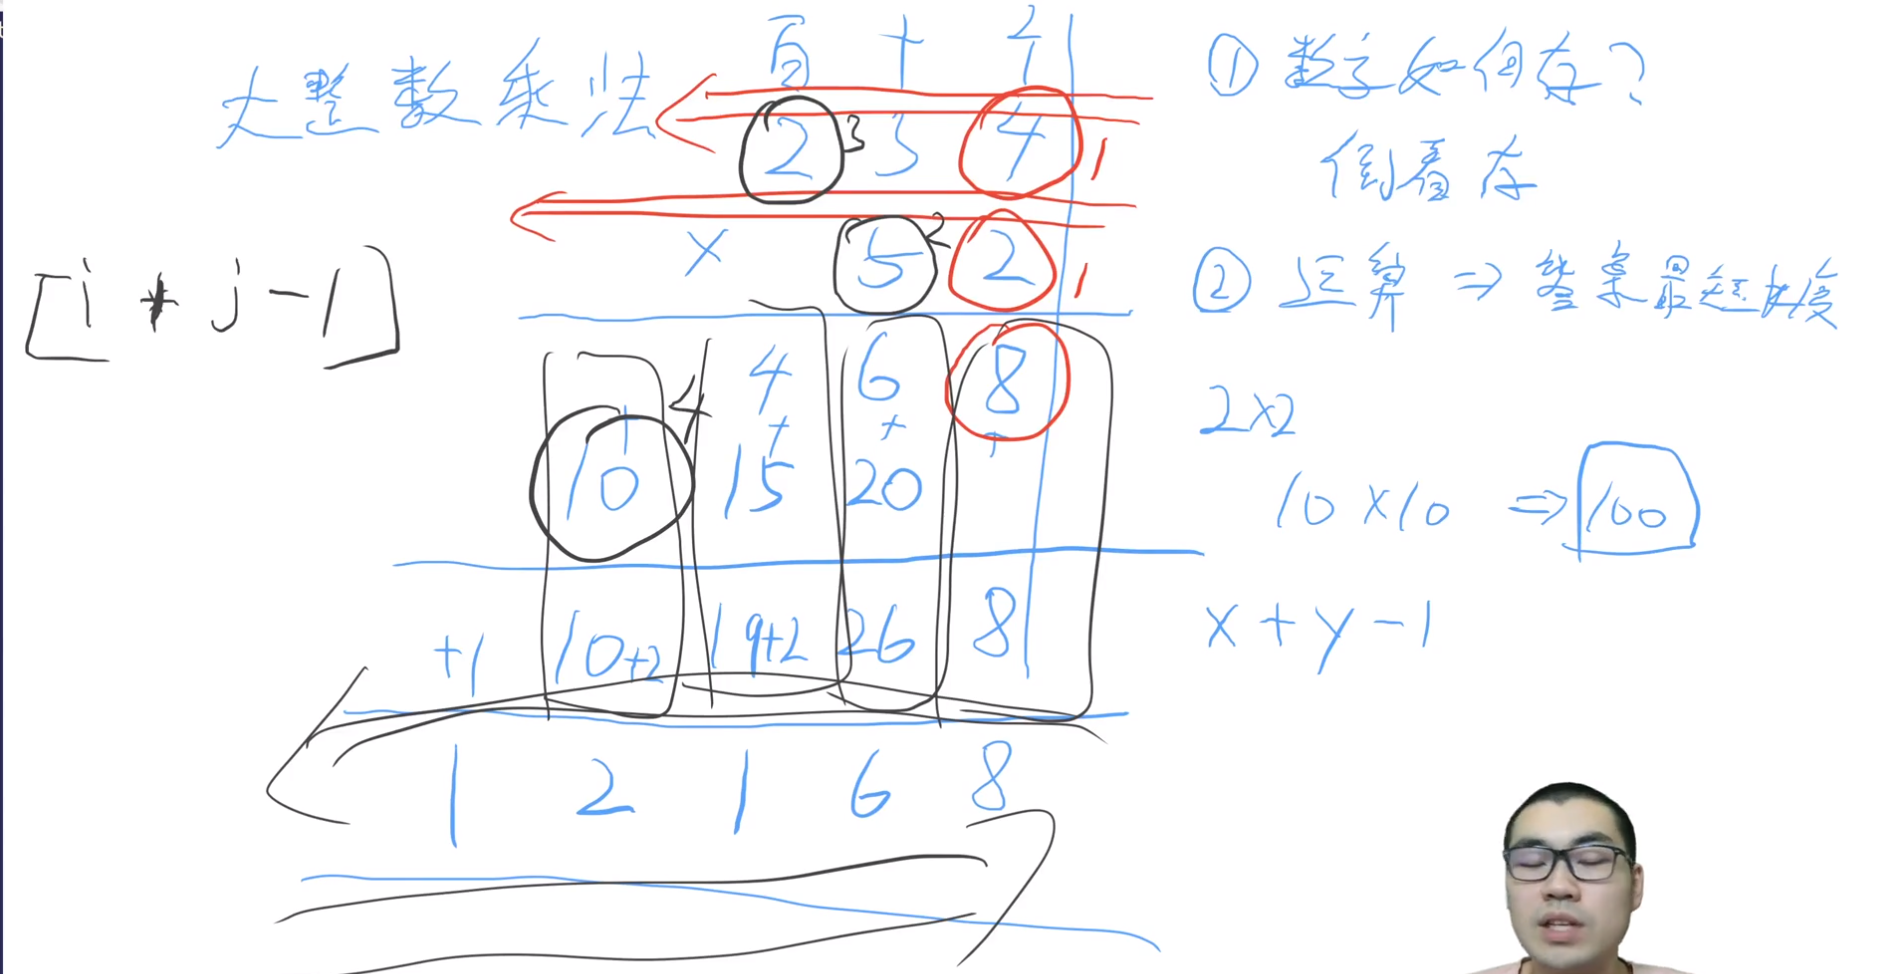 大整数乘法
百 十 个
2 3 3 4 1
× 5 2 2 1
[i + j - 1]
4 6 8
+ + +
4
10 15 20
+1 10+2 19+2 26 8
1 2 1 6 8
① 数字如何存?
倒着存
② 运算 ⇒ 答案最短长度
2×2
10×10 ⇒ 100
x+y-1